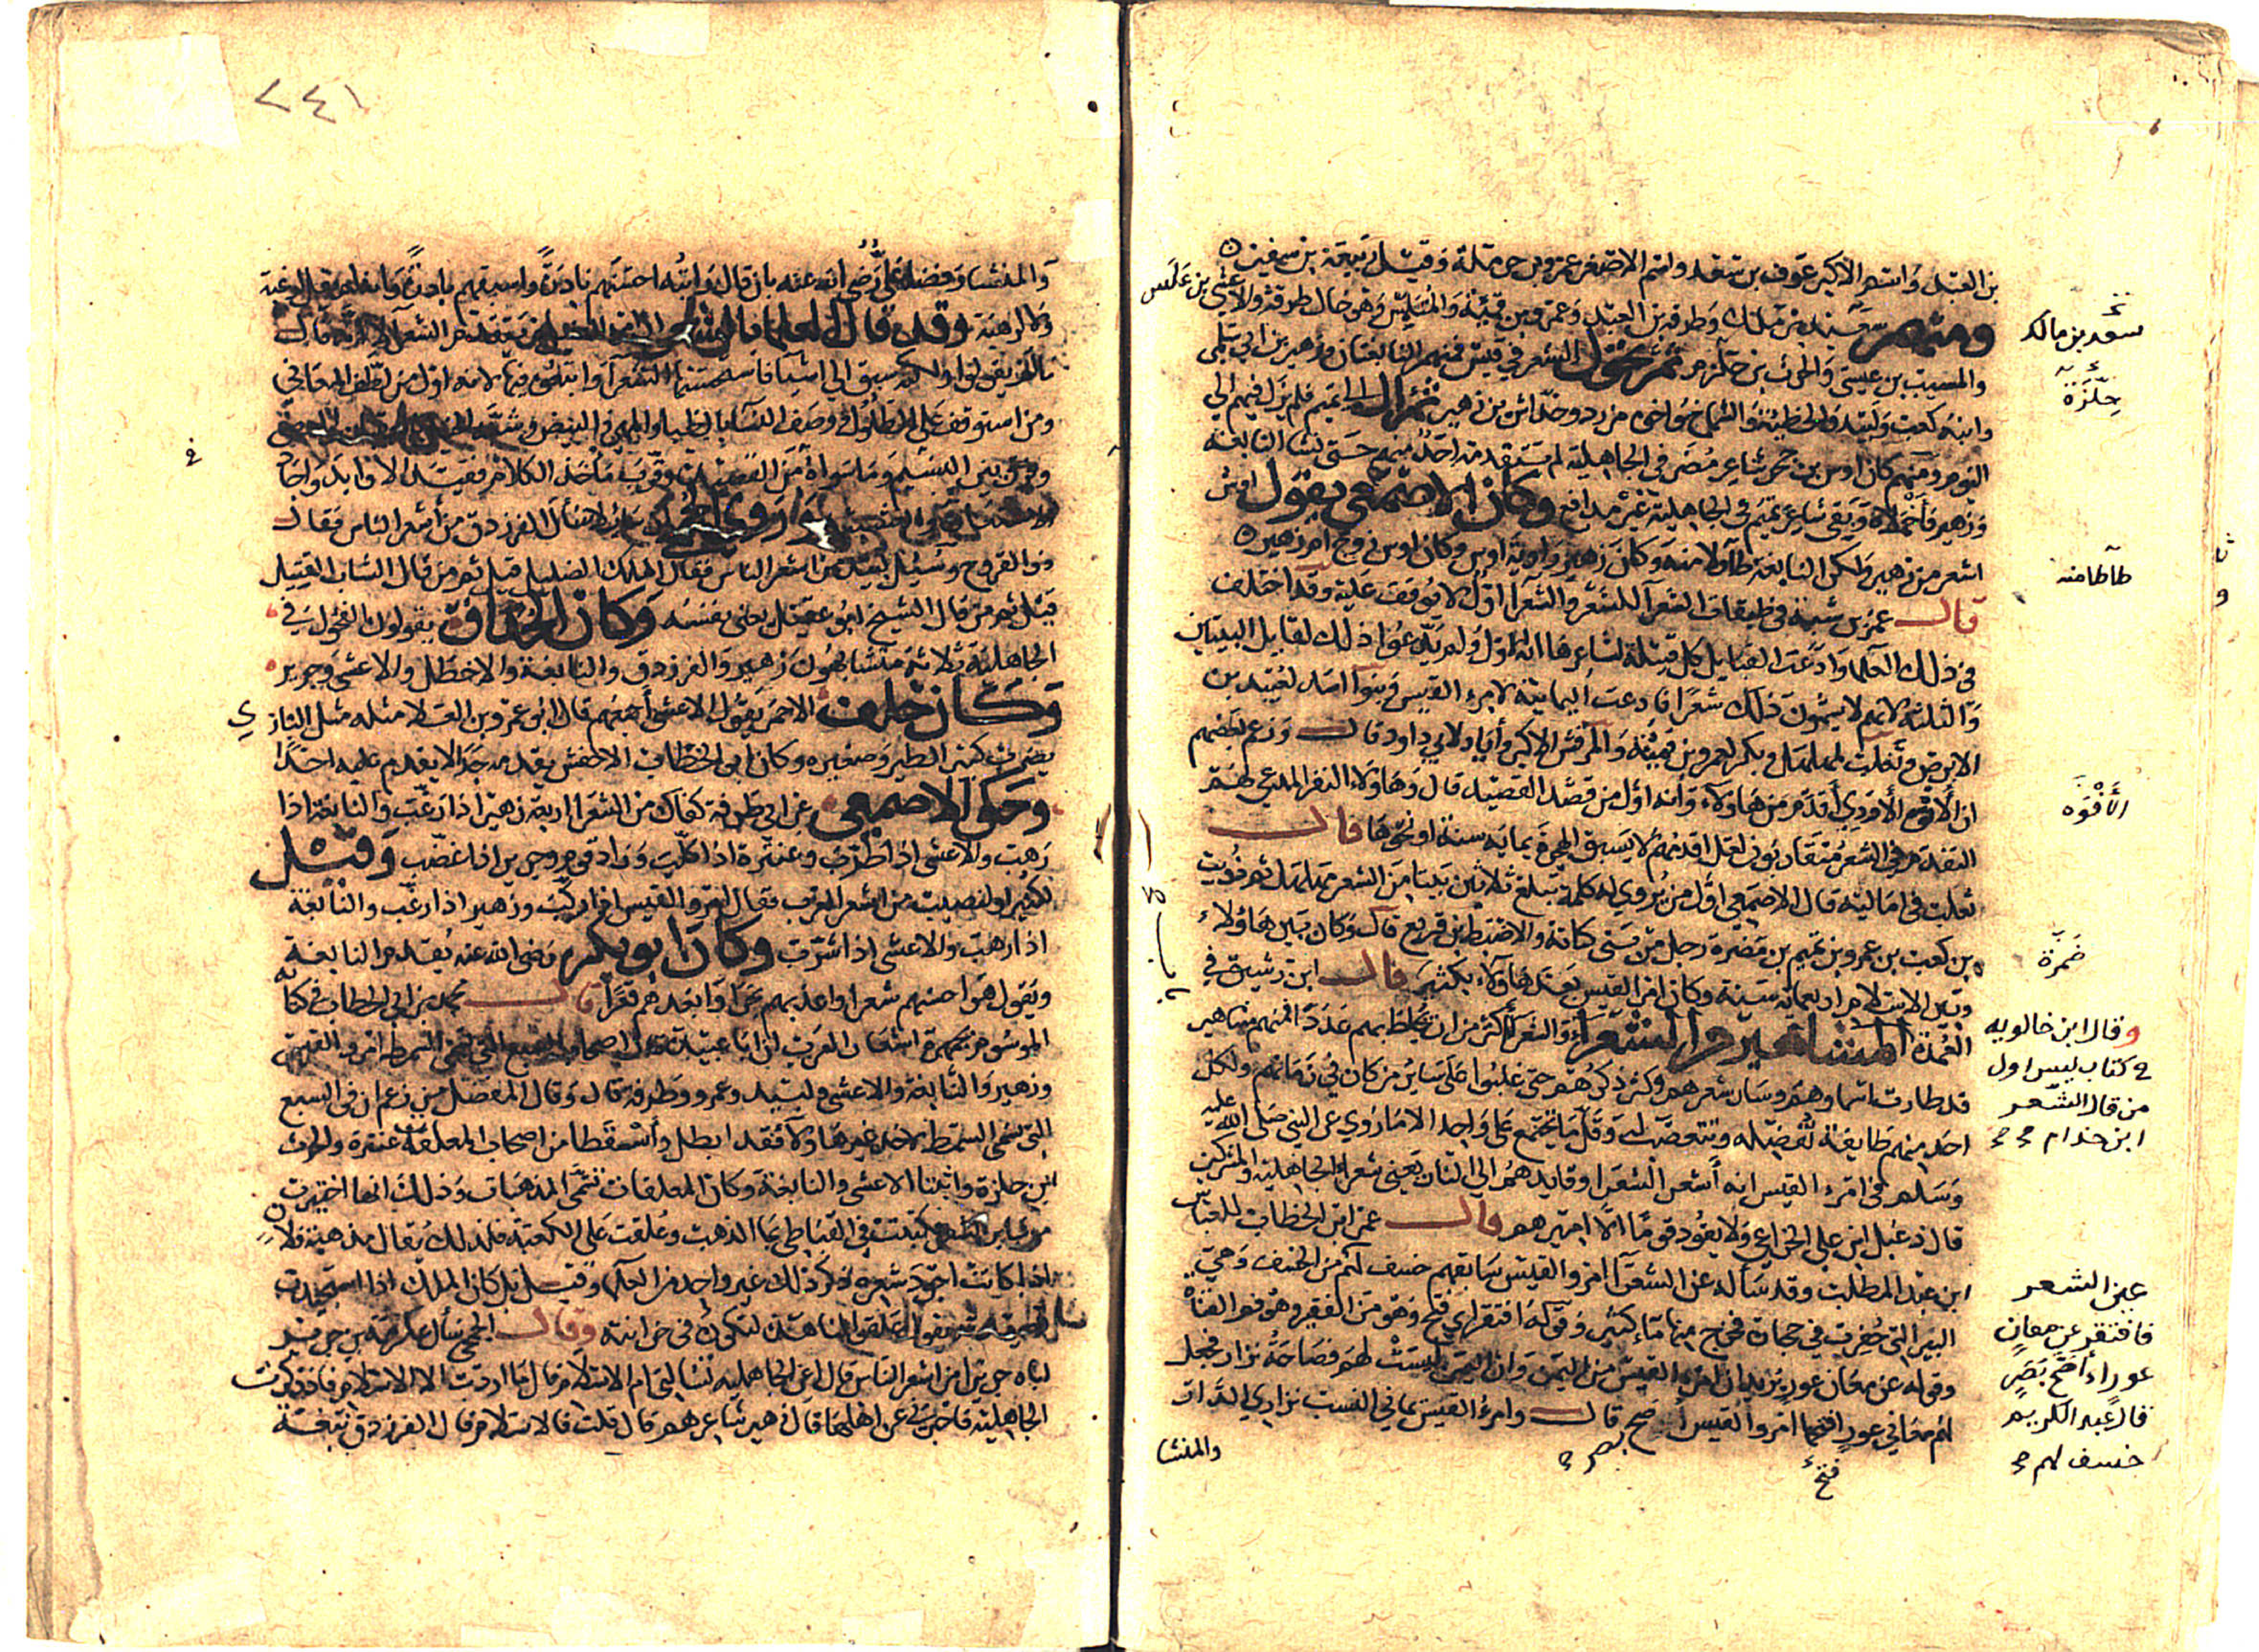 بن العبد واسم الاكبر عوف بن سعد واسم الاصغر عمرو بن حرملة وقيل ربيعة بن سفين
ومنهم سعد بن مالك وطرفة بن العبد وعمرو بن قميئة والمتلمس وهو خال طرفة والاعشى
والمسيب بن علس والحرث بن حلزه ثم تحول الشعر في قيس فمنهم النابغتان وزهير بن ابي سلمى
وابنه كعب ولبيد والحطيئة والشماخ واخوه مزرد وخداش بن زهير ثم ال الى تميم فلم يزل فيهم الى
اليوم ومنهم كان اوس بن حجر شاعر مضر في الجاهلية لم يتقدمه احد منهم حتى نشا النابغة
وزهير فاخملاه وبقي شاعر تميم في الجاهلية غير مدافع وكان الاصمعي يقول اوس
اشعر من زهير ولكن النابغة طأطأ منه وكان زهير راوية اوس وكان اوس زوج ام زهير
قال عمر بن شبة في طبقات الشعراء للشعر والشعراء اول لا يوقف عليه وقد اختلف
في ذلك العلماء وادعت القبايل كل قبيلة لشاعرها انه الاول ولم يدعوا ذلك لقايل البيتين
والثلثة لانهم لا يسمون ذلك شعرا فادعت اليمانية لامرء القيس وبنوا اسد لعبيد بن
الابرص وتغلب لمهلهل وبكر لعمرو بن قميئة والمرقش الاكبر وأياد لابي داود قال وزعم بعضهم
ان الافوه الاودي أقدم من هاولاء وانه اول من قصد القصيد قال وهاولاء النفر المدعى لهم
التقدم في الشعر متقاربون لعل اقدمهم لا يسبق الهجرة بمايه سنة او نحوها قال
ثعلب في اماليه قال الاصمعي اول من يروى له كلمة تبلغ ثلاثين بيتا من الشعر مهلهل ثم ذويب
بن كعب بن عمرو بن تميم بن ضمرة رجل من بني كنانة والاضبط بن قريع قال وكان بين هاولاء
وبين الاسلام اربعمايه سنة وكان امرء القيس بعد هاولاء بكثير قال ابن رشيق في
العمدة المشاهير من الشعراء والشعراء أكثر من ان يحاط بهم عددا فمنهم مشاهير
قد طارت اسماوهم وسار شعرهم وكثر ذكرهم حتى غلبوا على ساير من كان في زمانهم ولكل
احد منهم طايفة تفضله وتتعصب له وقل ما يجتمع على واحد الا ما روي عن النبي صلى الله عليه
وسلم في امرء القيس انه أشعر الشعرا وقايدهم الى النار يعني شعراء الجاهلية والمشركين
قال دعبل ابن علي الخزاعي ولا يقود قوما الا اميرهم قال عمر ابن الخطاب للعباس
ابن عبد المطلب وقد سأله عن الشعرآ امرو القيس سابقهم خسف لهم من الخسف وهي
البير التي حفرت في حجارة فخرج منها ماء كثير وقوله افتقر اي فتح وهو من الفقر وهو فم القناة
وقوله عن معان عور يريد ان امرء القيس من اليمن وان اليمن ليست لهم فصاحة نزار فجعل
لهم معاني عور افتح امرو القيس أصح بصر قال وامرء القيس يماني النسب نزاري الدار
والمنشا
بن علس
سعد بن مالك
حلزة
طاطا منه
الأفوه
ضمرة
وقال ابن خالويه
في كتاب ليس اول
من قال الشعر
ابن خدام
عين الشعر
فافتقر عن معان
عوراء أصح بصر
قال عبد الكريم
خسف لهم
فتح
٢٤١
والمنشا وفضله علي رضي الله عنه بان قال رايته احسنهم نادرة واسبقهم بادرة وانه لم يقل لرغبة
ولا لرهبة وقد قال العلما بالشعر ان امرء القيس لم يتقدم الشعرآ لانه قال
ما لم يقولوا ولكنه سبق الى اشيآ فاستحسنها الشعرآ واتبعوه فيها لانه اول من لطف المعاني
ومن استوقف على الطلول ووصف النسآ بالظبا والمها والبيض وشبه الخيل بالعقبان والعصي
وفرق بين النسيب وما سواه من القصيد وقرب مأخذ الكلام فقيد الاوابد واجا
ان سايلا سأل الفرزدق من أشعر الناس فقال
ذو القروح وسئل لبيد من اشعر الناس فقال الملك الضليل قيل ثم من قال الشاب القتيل
قيل ثم من قال الشيخ ابو عقيل يعني نفسه وكان الحذاق يقولون الفحول في
الجاهلية ثلاثة متشابهون زهير والفرزدق والنابغة والاخطل والاعشى وجرير
وكان خلف الاحمر يقول الاعشى أجمعهم قال ابو عمرو بن العلا مثله مثل البازي
يضرب كبير الطير وصغيره وكان ابو الخطاب الاخفش يقدمه جدا لا يقدم عليه احدا
وحكى الاصمعي عن ابن ابي طرفة كفاك من الشعرا اربعة زهير اذا رغب والنابغة اذا
رهب والاعشى اذا طرب وعنترة اذا كلب وزاد قوم وجرير اذا غضب وقيل
لكثير او لنصيب من اشعر العرب فقال امرو القيس اذا ركب وزهير اذا رغب والنابغة
اذا رهب والاعشى اذا شرب وكان ابو بكر رضي الله عنه يقدم النابغة
ويقول هو احسنهم شعرا واعذبهم بحرا وابعدهم قعرا قال محمد بن ابي الخطاب في كتابه
الموسوم بجمهرة اشعار العرب ان ابا عبيدة قال اصحاب السبع التي تسمى السمط امرو القيس
وزهير والنابغة والاعشى ولبيد وعمرو وطرفة قال وقال المفضل من زعم ان في السبع
التي تسمى السمط لاحد غير هاولاء فقد ابطل وأسقطا من اصحاب المعلقات عنترة والحرث
ابن حلزة واثبتا الاعشى والنابغة وكان المعلقات تسمى المذهبات وذلك انها اختيرت
من ساير الشعر فكتبت في القباطي بما الذهب وعلقت على الكعبة فلذلك يقال مذهبة فلان
اذا كانت اجود شعره ذكر ذلك غير واحد من العلمآ وقيل بل كان الملك اذا استجيدت
قصيدة يقول علقوا لنا هذه لتكون في خزانته وقال الجمحي سأل عكرمة بن جرير
اباه جريرا من اشعر الناس قال اعن الجاهلية تسالني ام الاسلام قال ما اردت الا الاسلام فاذ ذكرت
الجاهلية فاخبرني عن اهلها قال زهير شاعرهم قال قلت فالاسلام قال الفرزدق نبعة